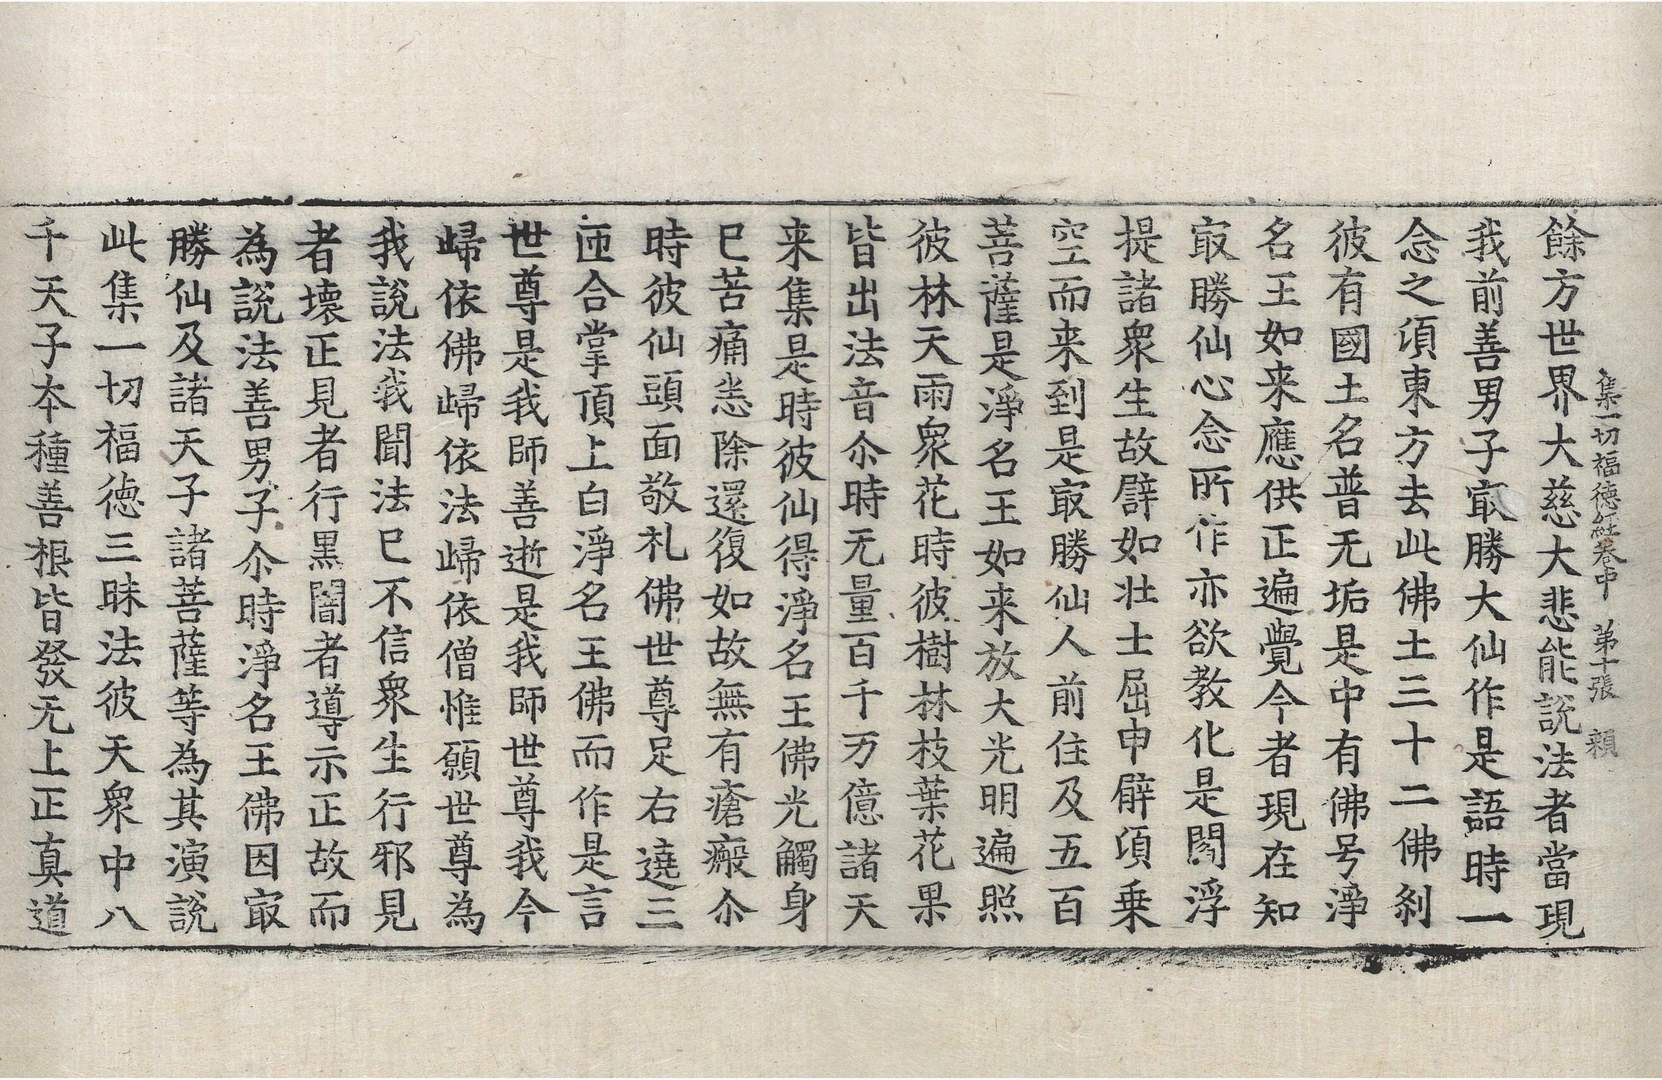 集一切福德経卷中　第十張　頼
餘方世界大慈大悲能説法者當現
我前善男子㝡勝大仙作是語時一
念之湏東方去此佛土三十二佛刹
彼有國土名普无垢是中有佛号淨
名王如来應供正遍覺今者現在知
㝡勝仙心念所作亦欲教化是閻浮
提諸衆生故譬如壮士屈申臂湏乗
空而来到是㝡勝仙人前住及五百
菩薩是淨名王如来放大光明遍照
彼林天雨衆花時彼樹林枝葉花果
皆出法音尒時无量百千万億諸天
来集是時彼仙得淨名王佛光觸身
已苦痛悉除還復如故無有瘡瘢尒
時彼仙頭面敬礼佛世尊足右遶三
匝合掌頂上白淨名王佛而作是言
世尊是我師善逝是我師世尊我今
歸依佛歸依法歸依僧惟願世尊為
我說法我聞法已不信衆生行邪見
者壊正見者行黒闇者導示正故而
為說法善男子尒時淨名王佛因㝡
勝仙及諸天子諸菩薩等為其演說
此集一切福徳三昧法彼天衆中八
千天子本種善根皆發无上正真道